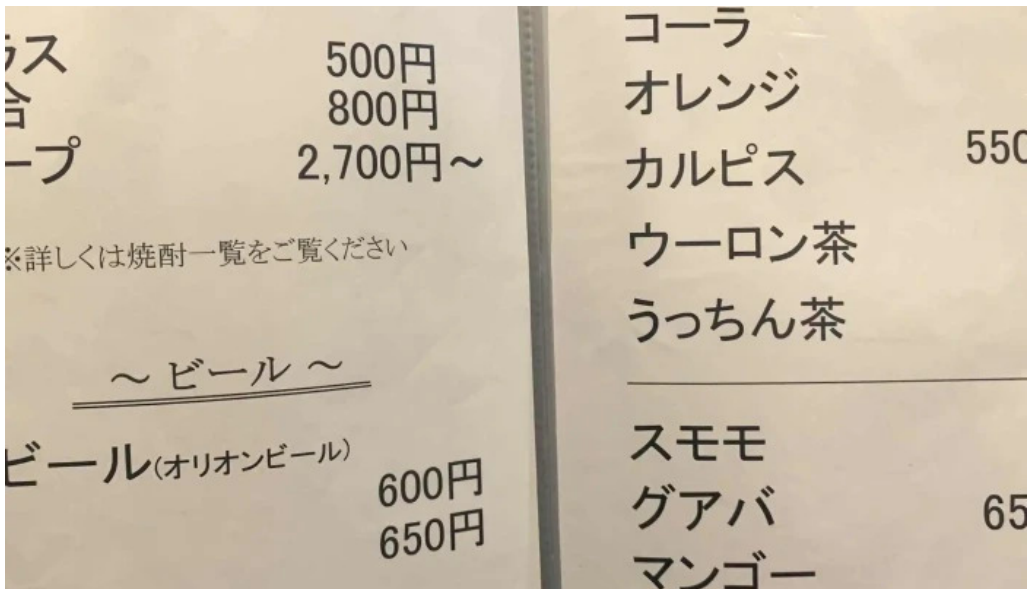 ラス 500円
合 800円
ープ 2,700円～
※詳しくは焼酎一覧をご覧ください
～ ビール ～
ビール(オリオンビール)
600円
650円
コーラ
オレンジ
カルピス 550
ウーロン茶
うっちん茶
スモモ
グアバ 65
マンゴー